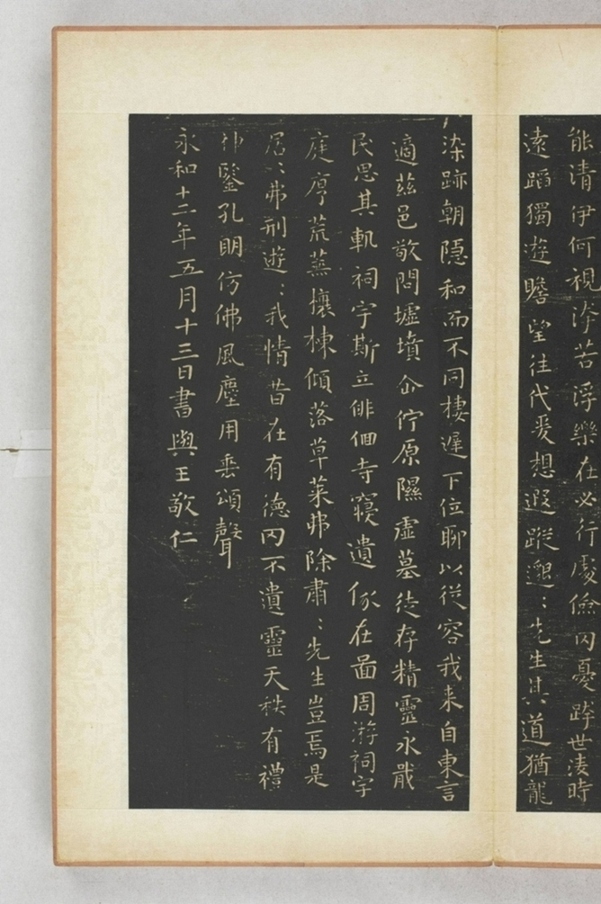 能清伊何視汙若浮樂在必行處儉罔憂跨世淩時
遠蹈獨遊瞻望往代爰想遐蹤邈〻先生其道猶龍
染跡朝隱和而不同棲遲下位聊以從容我来自東言
適茲邑敬問墟墳企佇原隰虛墓徒存精靈永戢
民思其軌祠宇斯立俳佪寺寢遺像在啚周游祠宇
庭序荒蕪榱棟傾落草萊弗除肅〻先生豈焉是
居〻弗刑遊〻我情昔在有德罔不遺靈天秩有禮
神鑒孔明仿佛風塵用垂頌聲
永和十二年五月十三日書與王敬仁